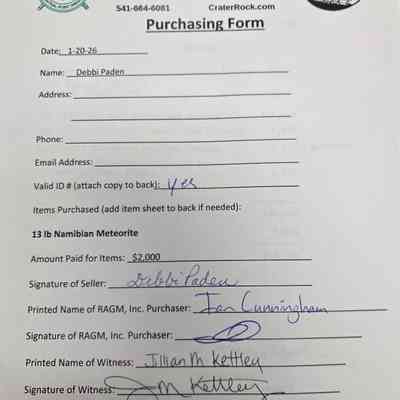 541-664-6081 CraterRock.com
Purchasing Form
Date: 1-20-26
Name: Debbi Paden
Address:
Phone:
Email Address:
Valid ID # (attach copy to back): yes
Items Purchased (add item sheet to back if needed):
13 lb Namibian Meteorite
Amount Paid for Items: $2,000
Signature of Seller: Debbi Paden
Printed Name of RAGM, Inc. Purchaser: Ian Cunningham
Signature of RAGM, Inc. Purchaser:
Printed Name of Witness: Jillian M Kettley
Signature of Witness: JM Kettley